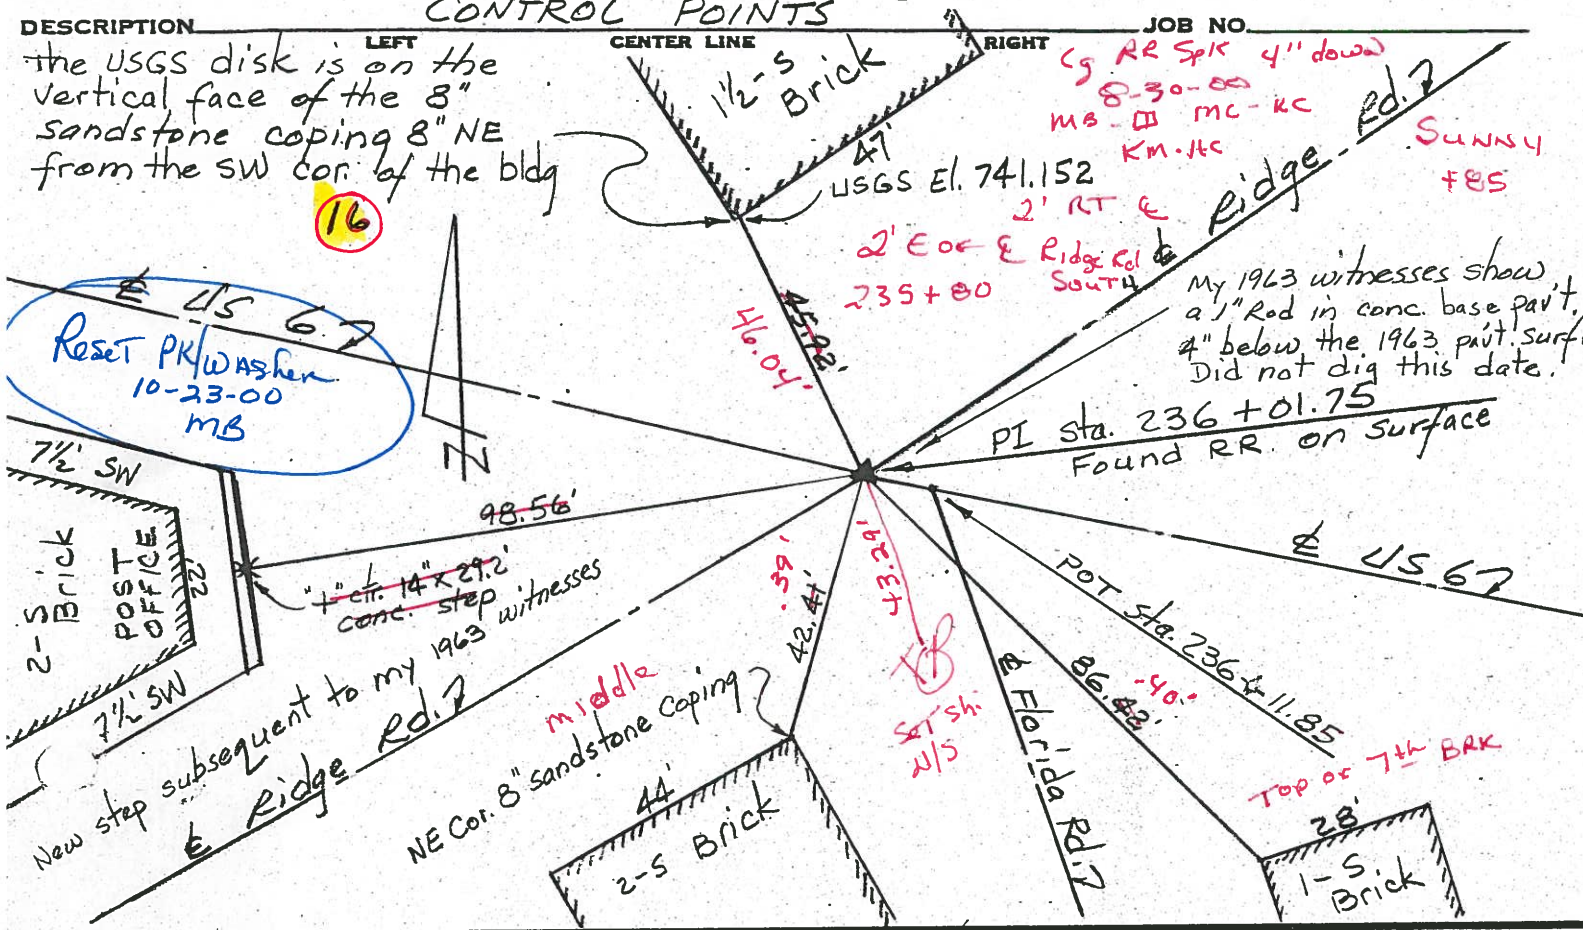 CONTROL POINTS
DESCRIPTION
JOB NO.
LEFT
CENTER LINE
RIGHT
the USGS disk is on the
vertical face of the 8"
sandstone coping 8" NE
from the SW cor. of the bldg
16
1½-S
Brick
47'
USGS El. 741.152
Cg RR Spk 4" down
8-30-00
MB - MC - KC
KM - HC
SUNNY
+85
2' RT ℄
2' E OF ℄ Ridge Rd
South
235+80
℄ Ridge Rd.
My 1963 witnesses show
a 1" Rod in conc. base pav't.
4" below the 1963 pav't. Surf
Did not dig this date.
PI sta. 236+01.75
Found RR. on surface
℄ US 6
Reset PK/WASher
10-23-00
MB
45.92'
46.04'
7½' SW
2-S
Brick
POST
OFFICE
22'
7½' SW
98.56'
"+" ctr. 14" x 29.2'
conc. step
New step subsequent to my 1963 witnesses
℄ Ridge Rd.
.39'
42.41'
43.29'
Set Sh.
N/S
middle
NE Cor. 8" sandstone coping
44'
2-S Brick
℄ Florida Rd.
86.42'
.40'
POT sta. 236+11.85
℄ US 6
Top of 7th BRK
28'
1-S
Brick